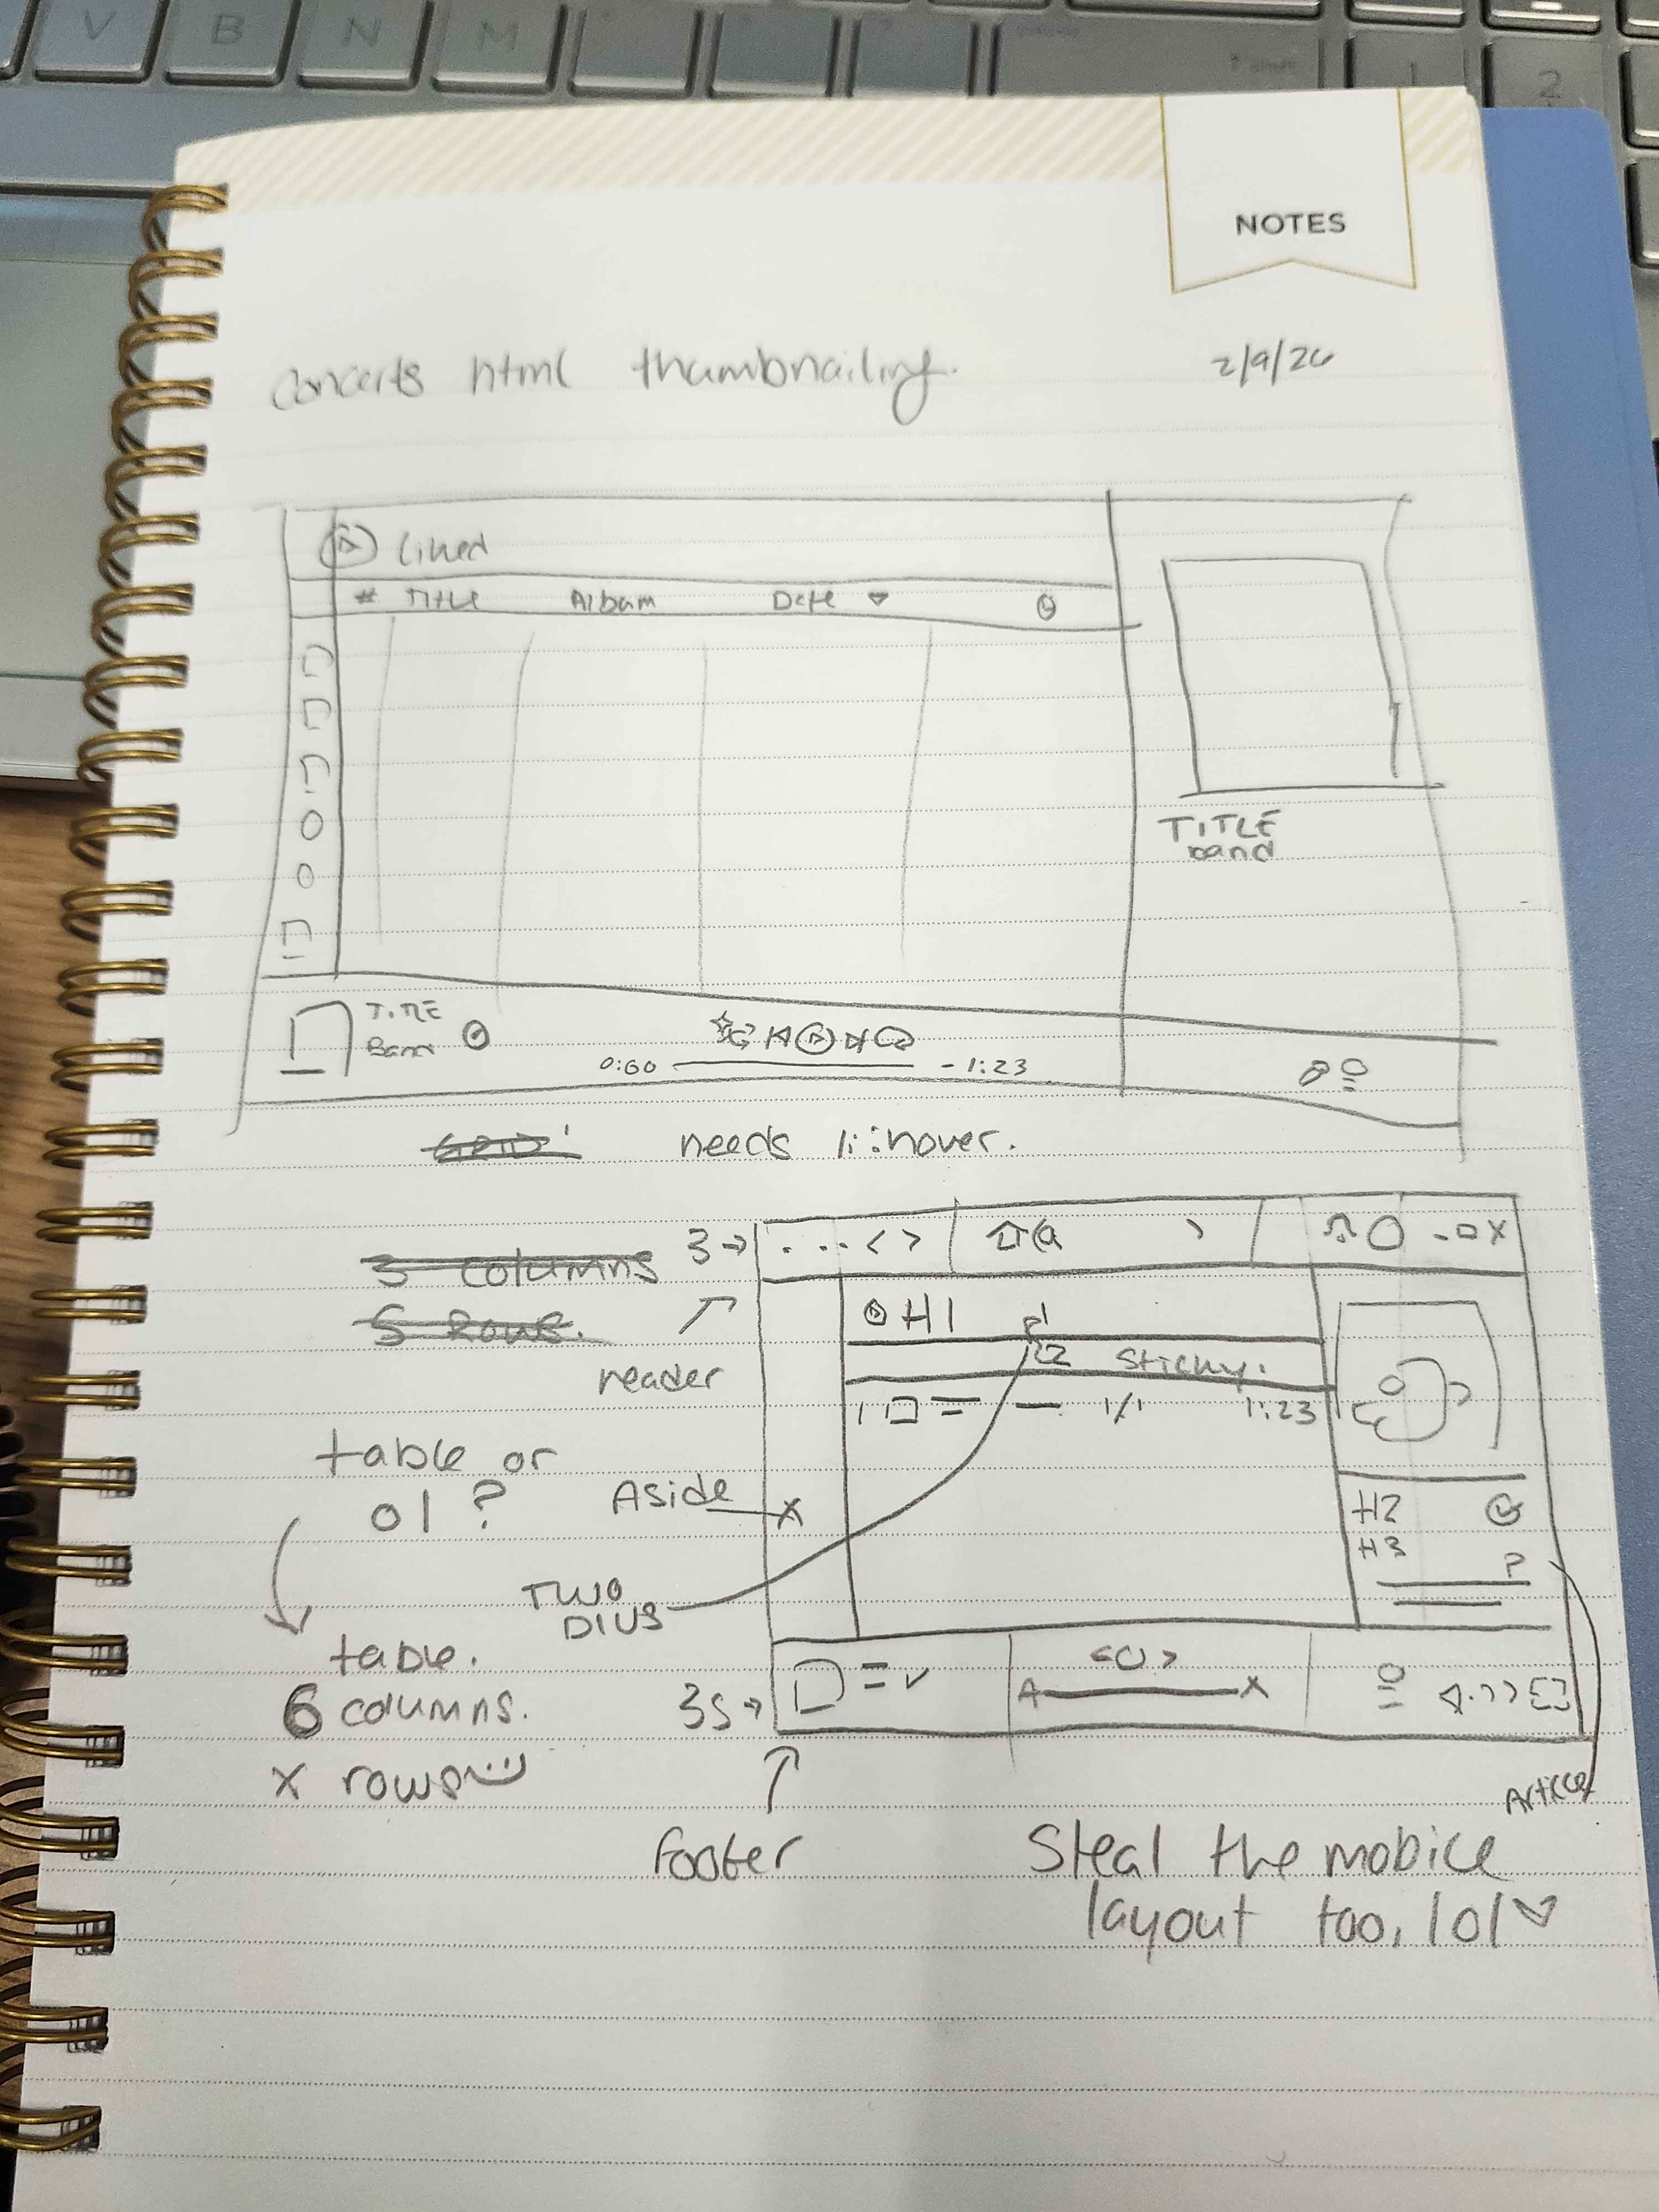 V B N M
1 2
NOTES
concerts html thumbnailing.
2/9/26
Liked
# Title Album Date
TITLE
band
TITLE
Band
0:60 - 1:23
GRID! needs li:hover.
3 → . . . < >
- □ X
3 columns
5 rows.
header
H1
r1
r2 sticky.
1 1/1 1:23
table or
ol ?
Aside X
H2
H3
P
TWO
DIVS
table.
6 columns.
X rows
3s →
Article
footer
Steal the mobile
layout too, lol